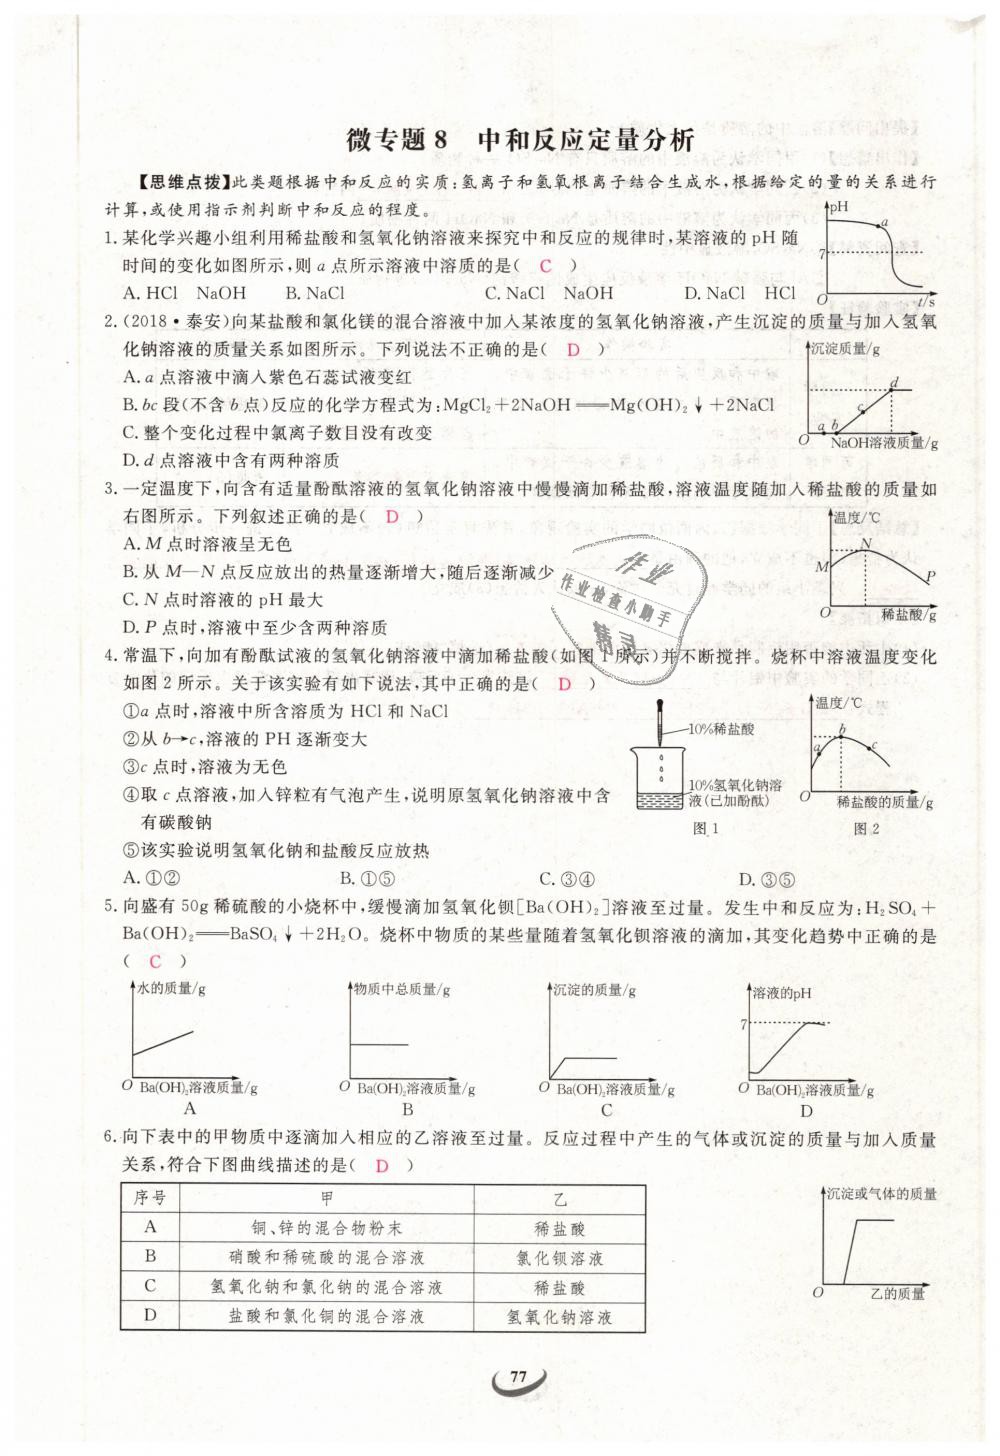 微专题8 中和反应定量分析
【思维点拨】此类题根据中和反应的实质:氢离子和氢氧根离子结合生成水,根据给定的量的关系进行
计算,或使用指示剂判断中和反应的程度。
1.某化学兴趣小组利用稀盐酸和氢氧化钠溶液来探究中和反应的规律时,某溶液的 pH 随
时间的变化如图所示,则 a 点所示溶液中溶质的是( C )
A. HCl NaOH B. NaCl C. NaCl NaOH D. NaCl HCl
pH
7
a
O
t/s
2.(2018·泰安)向某盐酸和氯化镁的混合溶液中加入某浓度的氢氧化钠溶液,产生沉淀的质量与加入氢氧
化钠溶液的质量关系如图所示。下列说法不正确的是( D )
A. a 点溶液中滴入紫色石蕊试液变红
B. bc 段(不含 b 点)反应的化学方程式为:MgCl₂+2NaOH══Mg(OH)₂↓+2NaCl
C. 整个变化过程中氯离子数目没有改变
D. d 点溶液中含有两种溶质
沉淀质量/g
d
c
a b
O
NaOH溶液质量/g
3.一定温度下,向含有适量酚酞溶液的氢氧化钠溶液中慢慢滴加稀盐酸,溶液温度随加入稀盐酸的质量如
右图所示。下列叙述正确的是( D )
A. M 点时溶液呈无色
B. 从 M—N 点反应放出的热量逐渐增大,随后逐渐减少
C. N 点时溶液的 pH 最大
D. P 点时,溶液中至少含两种溶质
温度/℃
N
M
P
O
稀盐酸/g
作业
作业检查小助手
精灵
4.常温下,向加有酚酞试液的氢氧化钠溶液中滴加稀盐酸(如图 1 所示)并不断搅拌。烧杯中溶液温度变化
如图 2 所示。关于该实验有如下说法,其中正确的是( D )
①a 点时,溶液中所含溶质为 HCl 和 NaCl
②从 b→c,溶液的 PH 逐渐变大
③c 点时,溶液为无色
④取 c 点溶液,加入锌粒有气泡产生,说明原氢氧化钠溶液中含
有碳酸钠
⑤该实验说明氢氧化钠和盐酸反应放热
A. ①② B. ①⑤ C. ③④ D. ③⑤
10%稀盐酸
10%氢氧化钠溶
液(已加酚酞)
图 1
温度/℃
b
a
c
O
稀盐酸的质量/g
图 2
5.向盛有 50g 稀硫酸的小烧杯中,缓慢滴加氢氧化钡[Ba(OH)₂]溶液至过量。发生中和反应为:H₂SO₄+
Ba(OH)₂══BaSO₄↓+2H₂O。烧杯中物质的某些量随着氢氧化钡溶液的滴加,其变化趋势中正确的是
( C )
水的质量/g
O Ba(OH)₂溶液质量/g
A
物质中总质量/g
O Ba(OH)₂溶液质量/g
B
沉淀的质量/g
O Ba(OH)₂溶液质量/g
C
溶液的pH
7
O Ba(OH)₂溶液质量/g
D
6.向下表中的甲物质中逐滴加入相应的乙溶液至过量。反应过程中产生的气体或沉淀的质量与加入质量
关系,符合下图曲线描述的是( D )
序号 甲 乙
A 铜、锌的混合物粉末 稀盐酸
B 硝酸和稀硫酸的混合溶液 氯化钡溶液
C 氢氧化钠和氯化钠的混合溶液 稀盐酸
D 盐酸和氯化铜的混合溶液 氢氧化钠溶液
沉淀或气体的质量
O
乙的质量
77